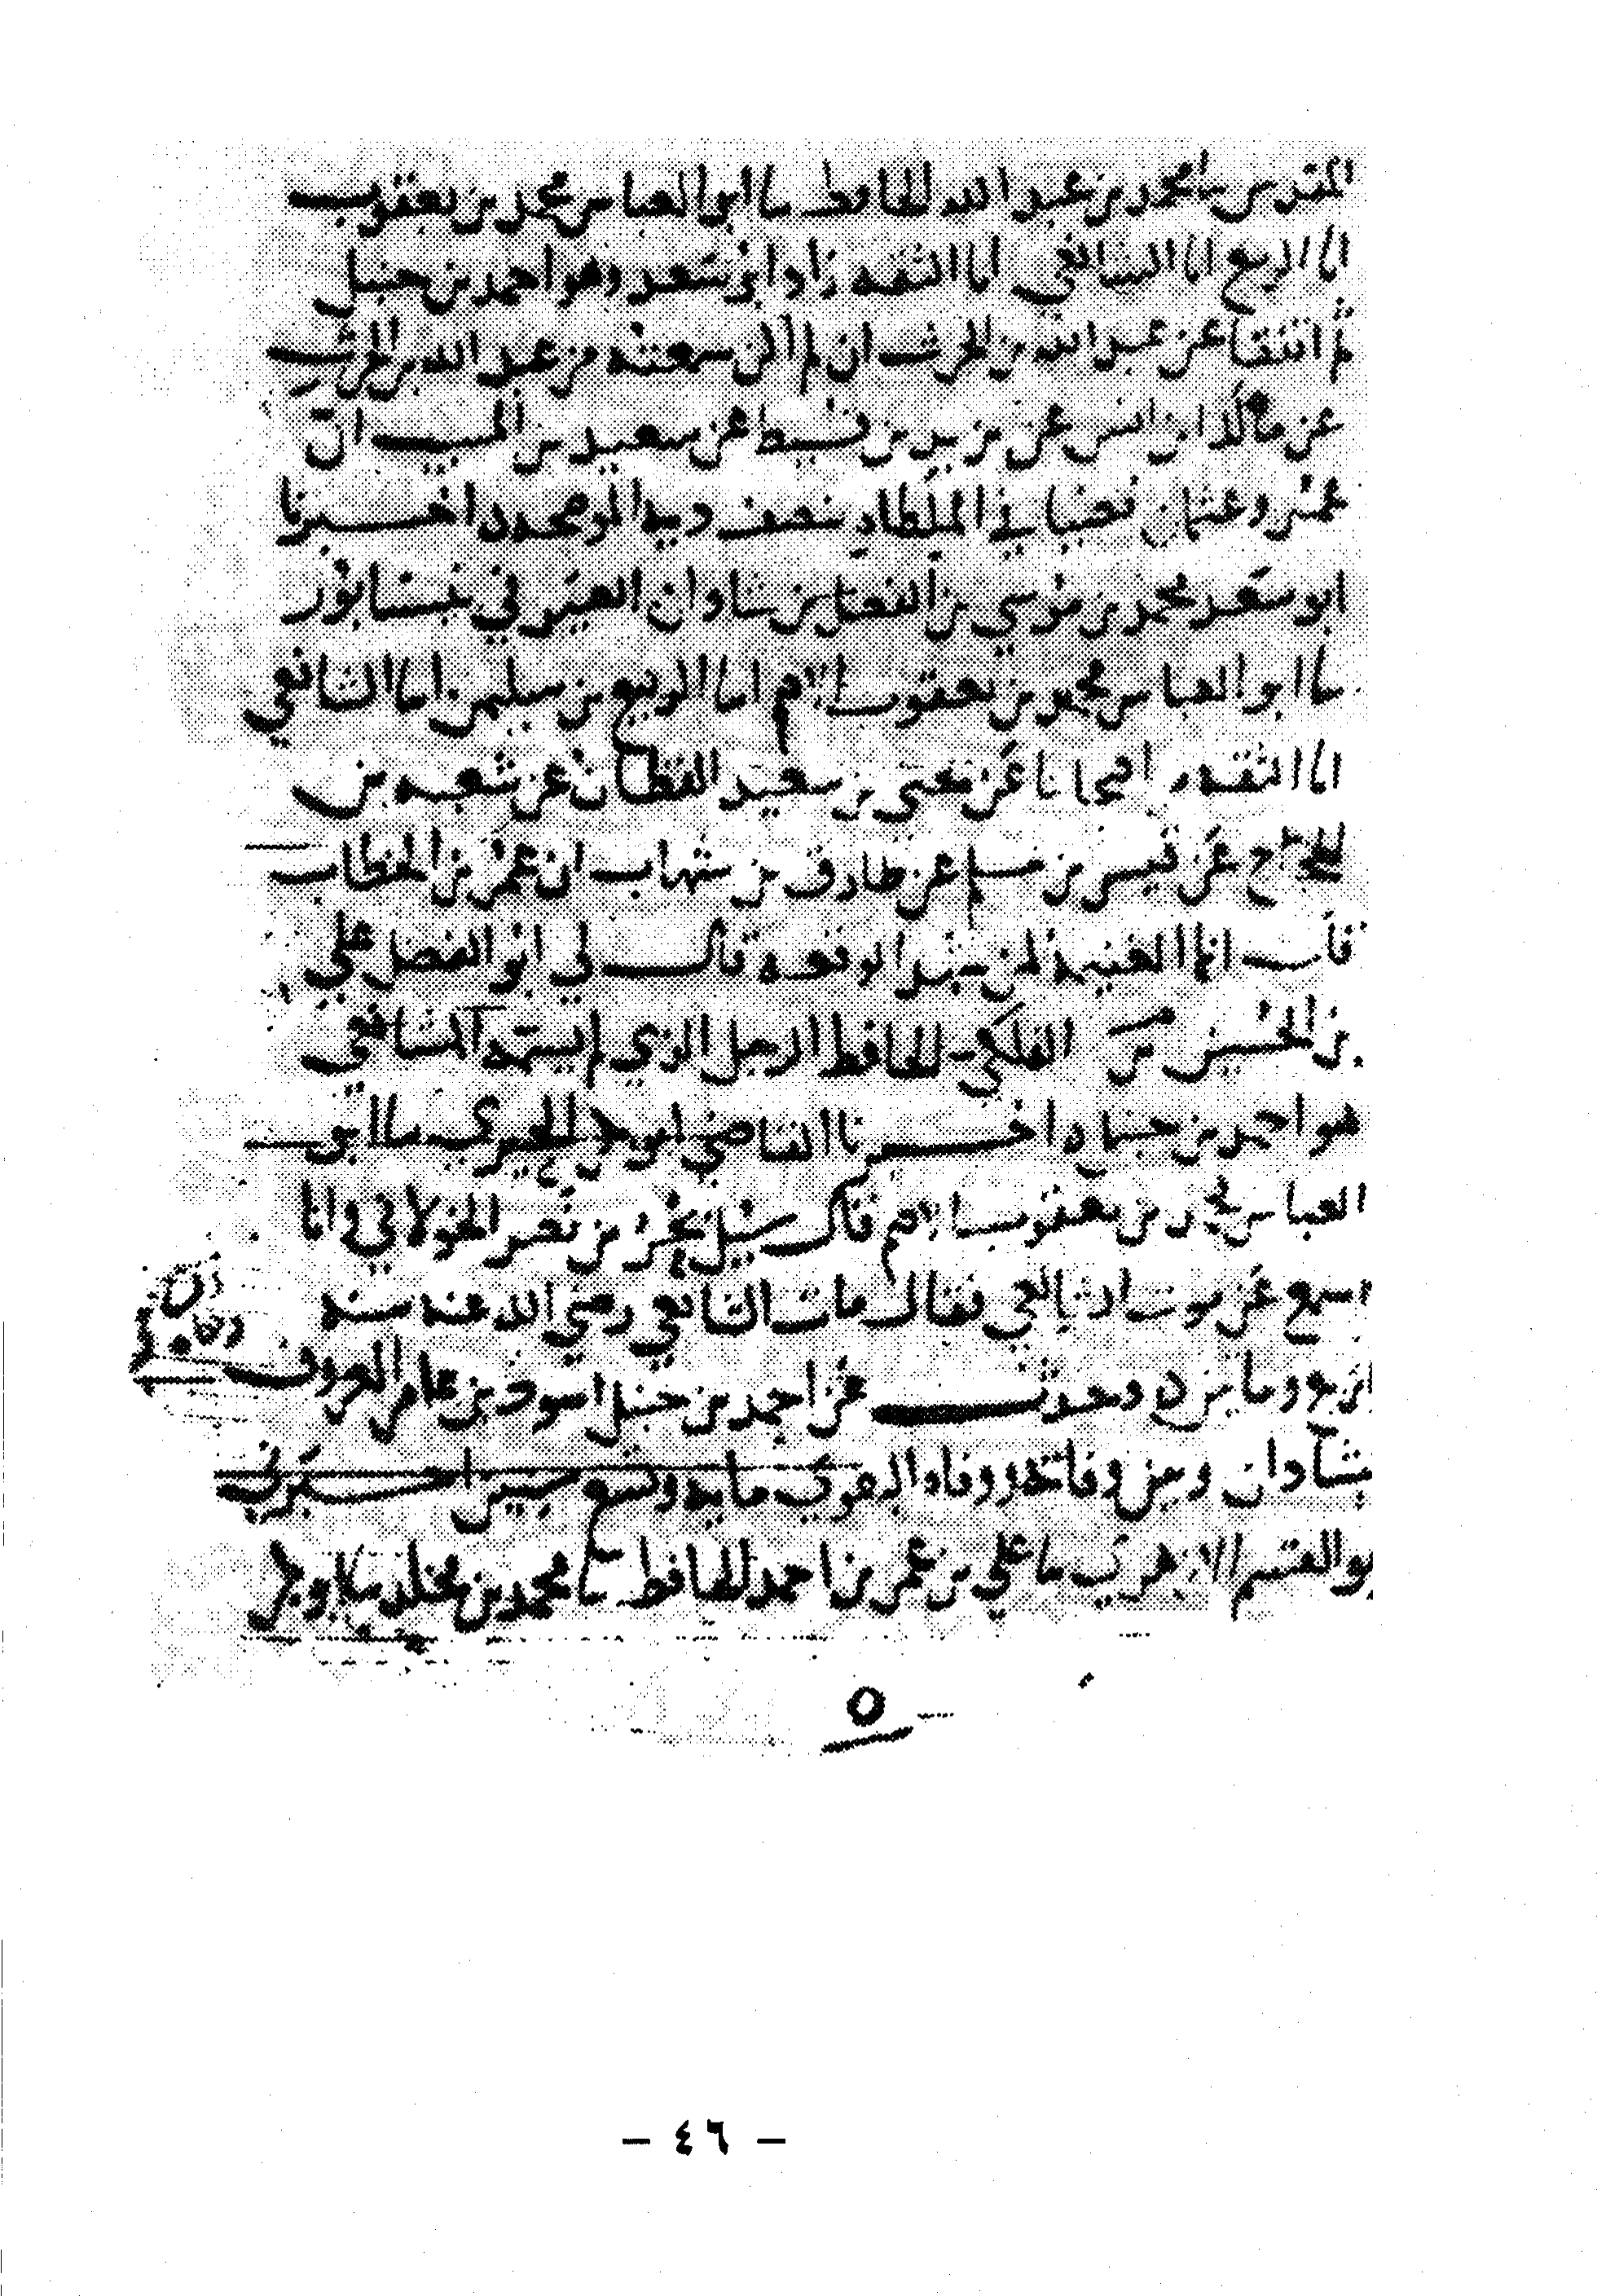 محمد بن عبد الله الحافظ نا ابو العباس محمد بن يعقوب
انا الربيع انا الشافعي انا الثقه زاد ابو سعد وهو احمد بن حنبل
ثم اتفقا عن عبد الله بن الحرث ان لم اكن سمعته من عبد الله بن الحرث
عن مالك ابن انس عن يزيد بن قسيط عن سعيد بن المسيب ان
عمر وعثمان قضيا في الملطاه بنصف ديه الموضحه اخبرنا
ابو سعد محمد بن موسي بن الفضل بن شاذان الصيرفي بنيسابور
نا ابو العباس محمد بن يعقوب الاصم انا الربيع بن سليمن انا الشافعي
انا الثقه من اصحابنا عن يحيى بن سعيد القطان عن شعبه بن
الحجاج عن قيس بن مسلم عن طارق بن شهاب ان عمر بن الخطاب
قال انما الغنيمه لمن شهد الوقعه قال لي ابو الفضل علي
بن الحسين الفلكي الحافظ الرجل الذي لم يسمه الشافعي
هو احمد بن حنبل اخبرنا القاضي ابو بكر الحيري نا ابو
العباس محمد بن يعقوب الاصم قال سئل بحر بن نصر الخولاني وانا
اسمع عن موت الشافعي فقال مات الشافعي رضي الله عنه سنه
اربع ومايتين وحدث عن احمد بن حنبل اسود بن عامر المعروف
بشاذان وبين وفاته ووفاه البغوي مايه وتسع سنين اخبرني
ابو القسم الازهري نا علي بن عمر بن احمد الحافظ نا محمد بن مخلد نا ابو بكر
٥
- ٤٦ -